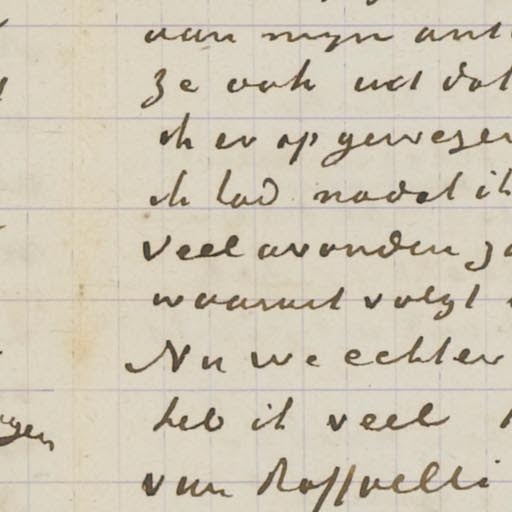 van mijn ant
ze ook uit dat
ik er op gewezen
ik had nadat ik
veel avonden za
waaruit volgt
Nu we echter
heb ik veel
van Raffaelli